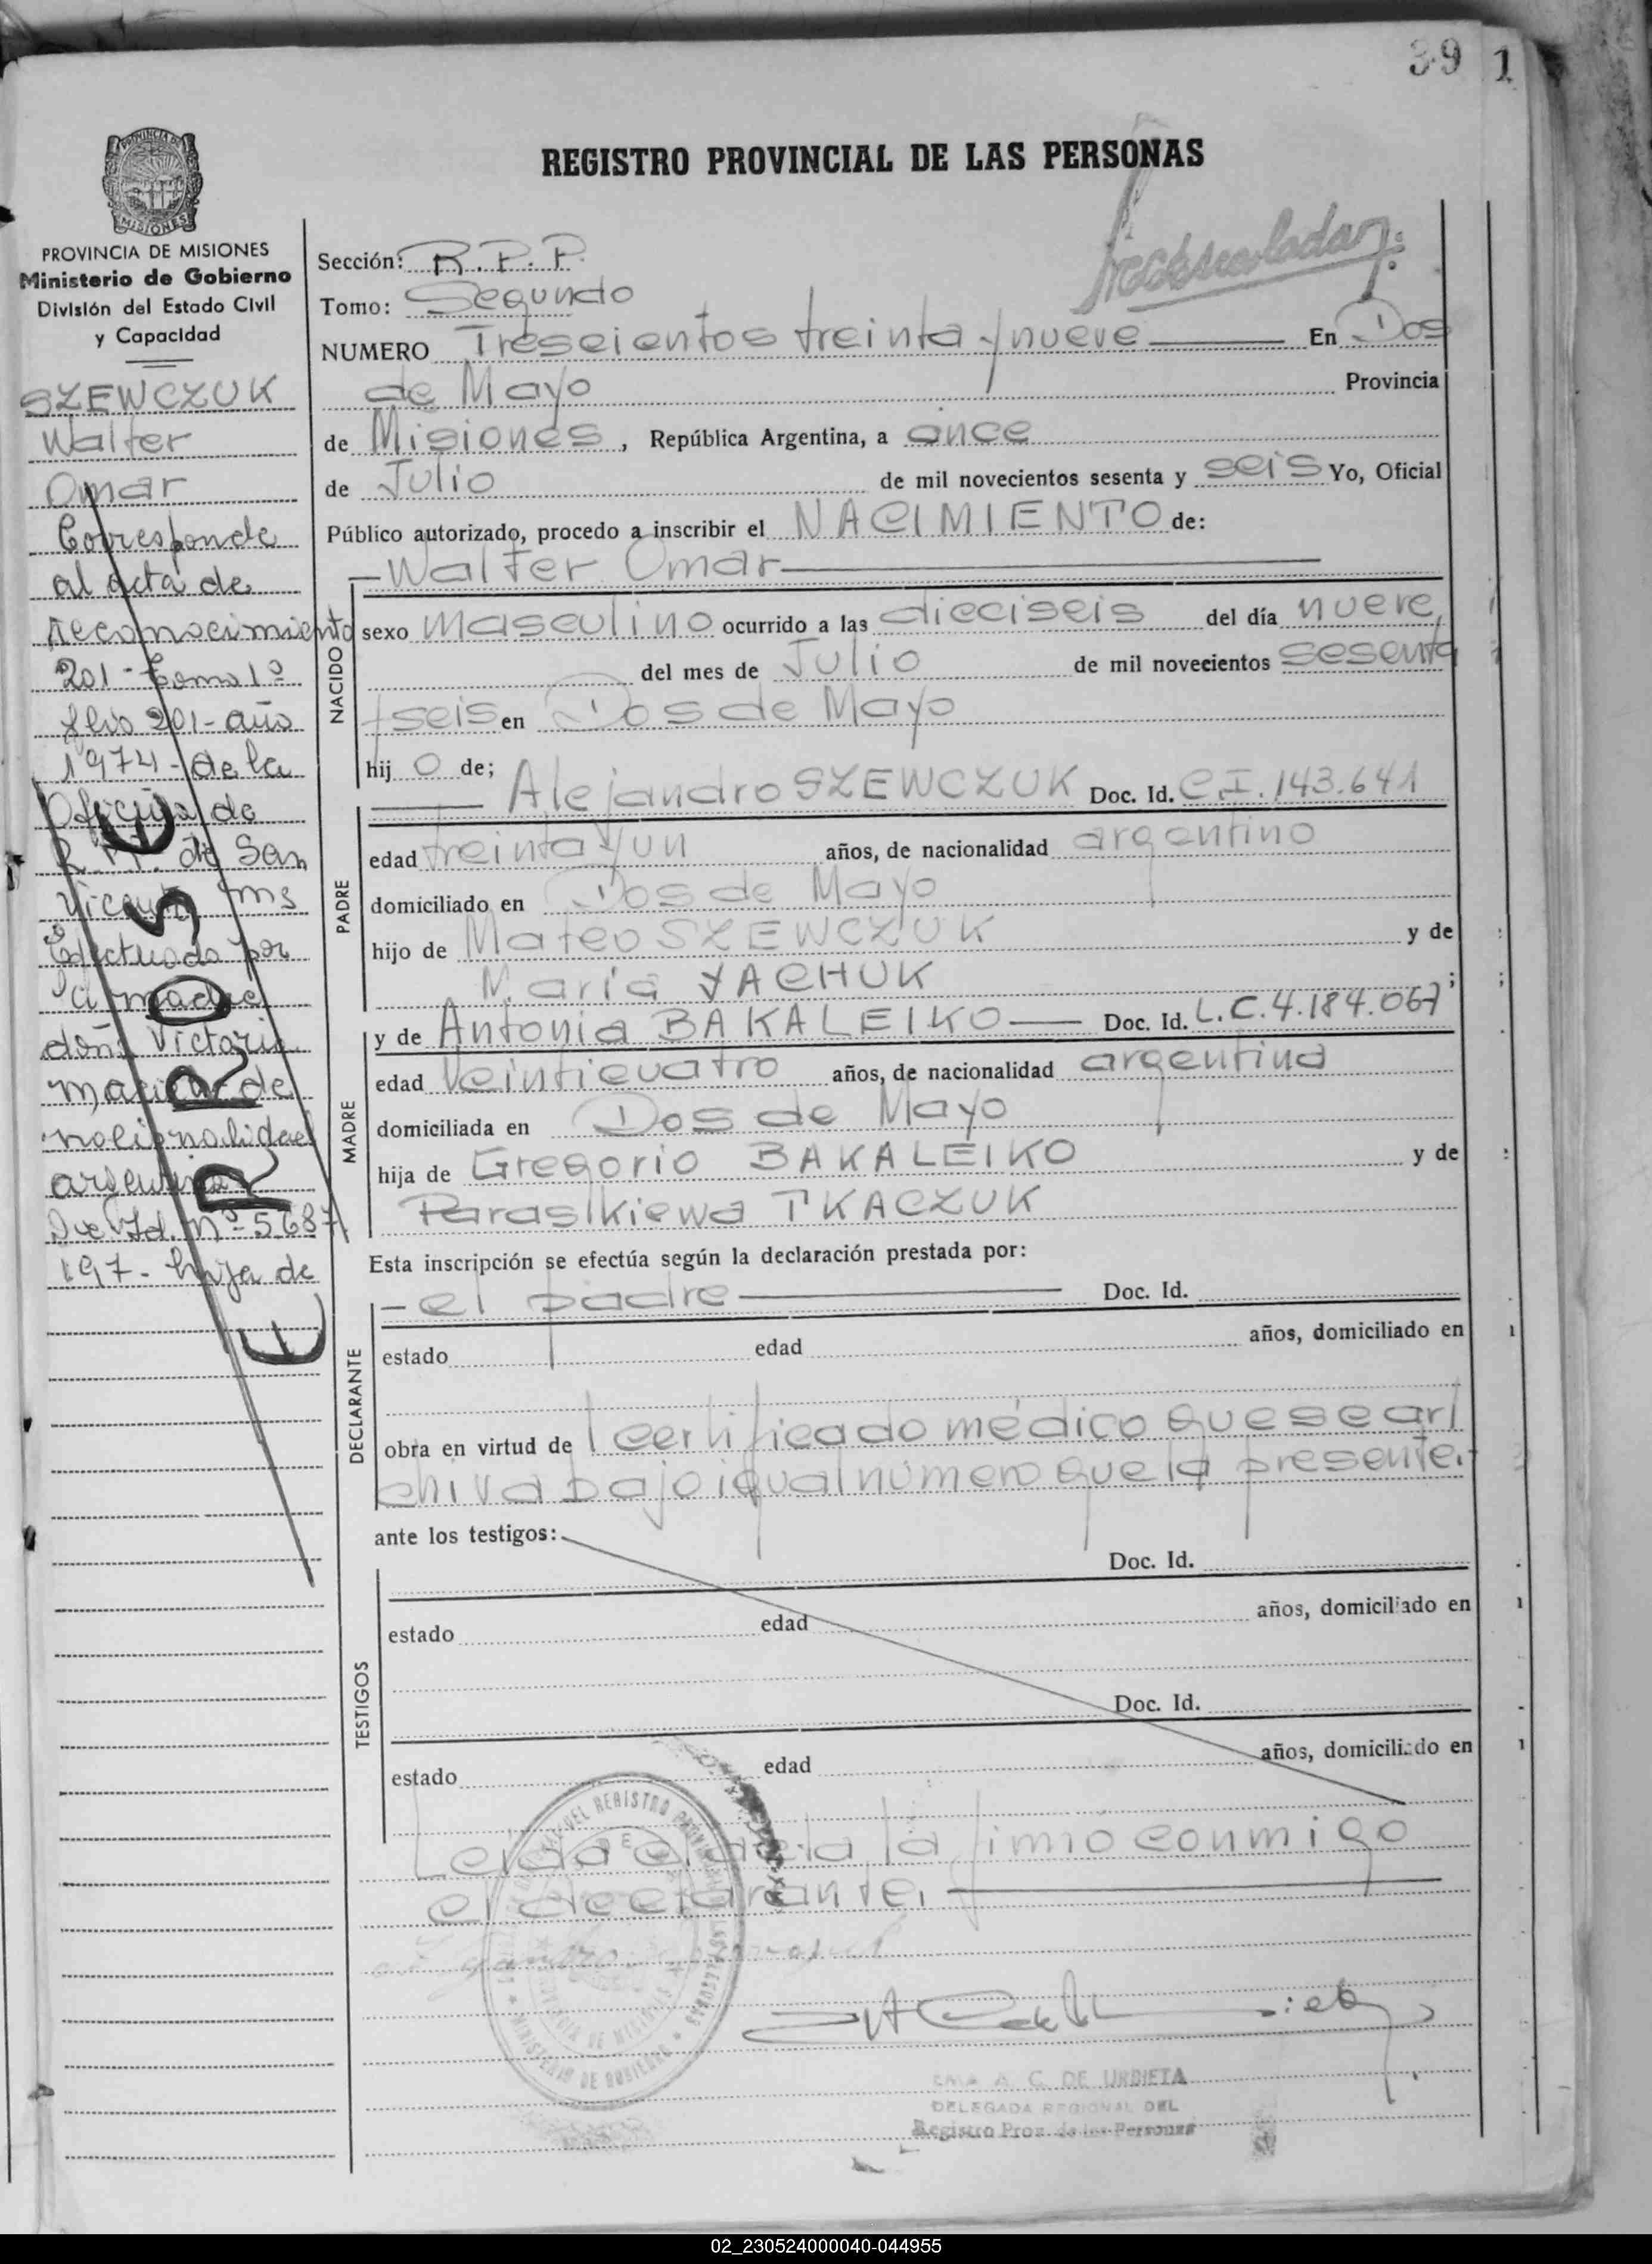 39 1
REGISTRO PROVINCIAL DE LAS PERSONAS
PROVINCIA DE MISIONES
Ministerio de Gobierno
División del Estado Civil
y Capacidad
SZEWCZUK
Walter
Omar
Corresponde
al acta de
reconocimiento
201 - Tomo 1º
flio 201 - año
1974 - de la
Oficina de
R. P. de San
Vicente Mns
Efectuado por
la madre
doña Victoria
de
nacionalidad
argentina
Doc Id. Nº 5.687
197 - hija de
ERROSE
Sección: R.P.P.
Tomo: Segundo
NUMERO Trescientos treinta y nueve En Dos
de Mayo Provincia
de Misiones, República Argentina, a once
de Julio de mil novecientos sesenta y seis Yo, Oficial
Público autorizado, procedo a inscribir el NACIMIENTO de:
Walter Omar
NACIDO
sexo masculino ocurrido a las dieciseis del día nueve
del mes de Julio de mil novecientos sesenta
y seis en Dos de Mayo
hijo de; Alejandro SZEWCZUK Doc. Id. C.I. 143.641
PADRE
edad treinta y un años, de nacionalidad argentino
domiciliado en Dos de Mayo
hijo de Mateo SZEWCZUK y de
María YACHUK ;
y de Antonia BAKALEIKO Doc. Id. L.C.4.184.067
MADRE
edad veinticuatro años, de nacionalidad argentina
domiciliada en Dos de Mayo
hija de Gregorio BAKALEIKO y de
Paraskiewa TKACZUK
Esta inscripción se efectúa según la declaración prestada por:
- el padre Doc. Id.
DECLARANTE
estado edad años, domiciliado en
obra en virtud de certificado médico que se ar/
chiva bajo igual número que la presente.
ante los testigos:
Doc. Id.
TESTIGOS
estado edad años, domiciliado en
Doc. Id.
estado edad años, domiciliado en
Leida el acta la firmó conmigo
el declarante.
REGISTRO PROVINCIAL DE LAS PERSONAS
MINISTERIO DE GOBIERNO
A. C. DE URBIETA
DELEGADA REGIONAL DEL
Registro Prov. de las Personas
02_230524000040-044955